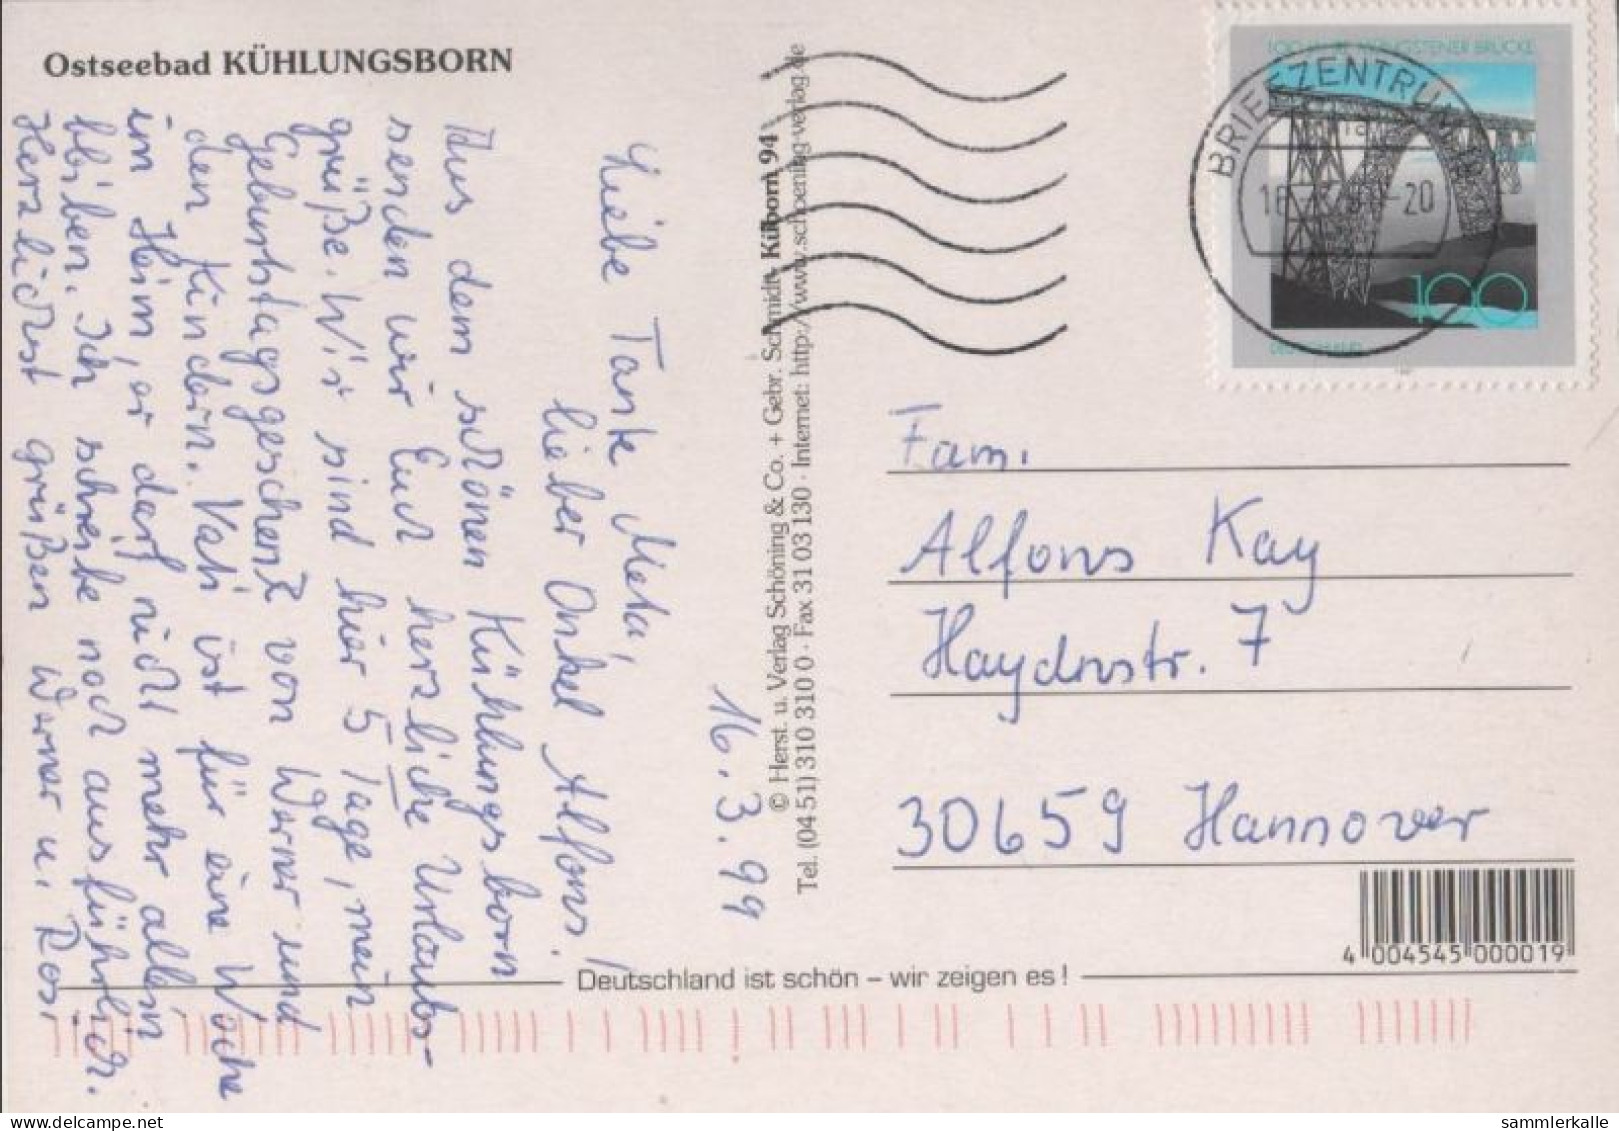 Ostseebad KÜHLUNGSBORN
16. 3. 99
Liebe Tante Meta,
lieber Onkel Alfons!
Aus dem schönen Kühlungsborn
senden wir Euch herzliche Urlaubs-
grüße. Wir sind hier 5 Tage, mein
Geburtstagsgeschenk von Werner und
den Kindern. Vati ist für eine Woche
im Heim, er darf nicht mehr allein
bleiben. Ich schreibe noch ausführlich.
Herzlichst grüßen Werner u. Rosi
© Herst. u. Verlag Schöning & Co. + Gebr. Schmidt, Kilborn 94
Tel. (04 51) 310 310 0 · Fax 31 03 130 · Internet: http://www.schoening-verlag.de
100 JAHRE MÜNGSTENER BRÜCKE
100
DEUTSCHLAND
BRIEFZENTRUM
-20
Fam.
Alfons Kay
Haydnstr. 7
30659 Hannover
4 004545 000019
Deutschland ist schön – wir zeigen es!
delcampe.net
sammlerkalle